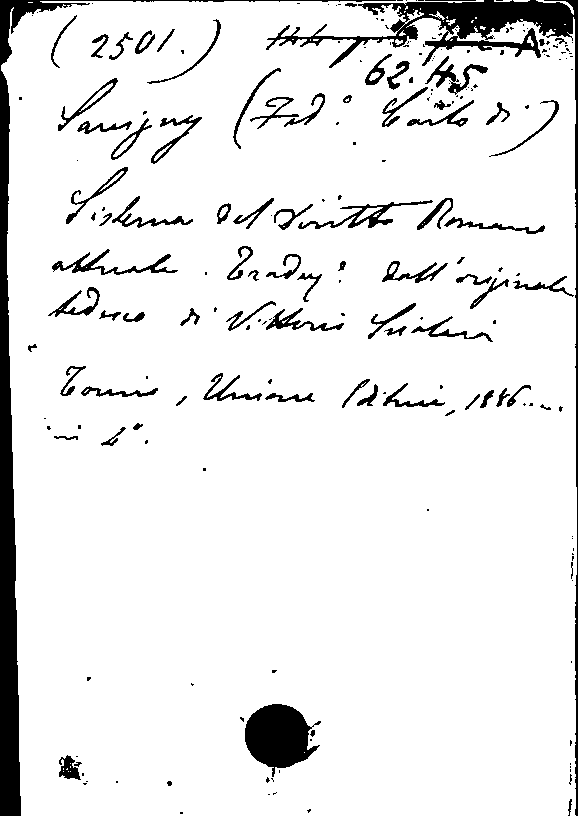 (2501.)
62.45
Savigny (Fed.º Carlo di)
Sistema del diritto Romano
attuale. Traduz.e dall'originale
tedesco di Vittorio Scialoia
Torino, Unione Editrice, 1886....
in 4°.